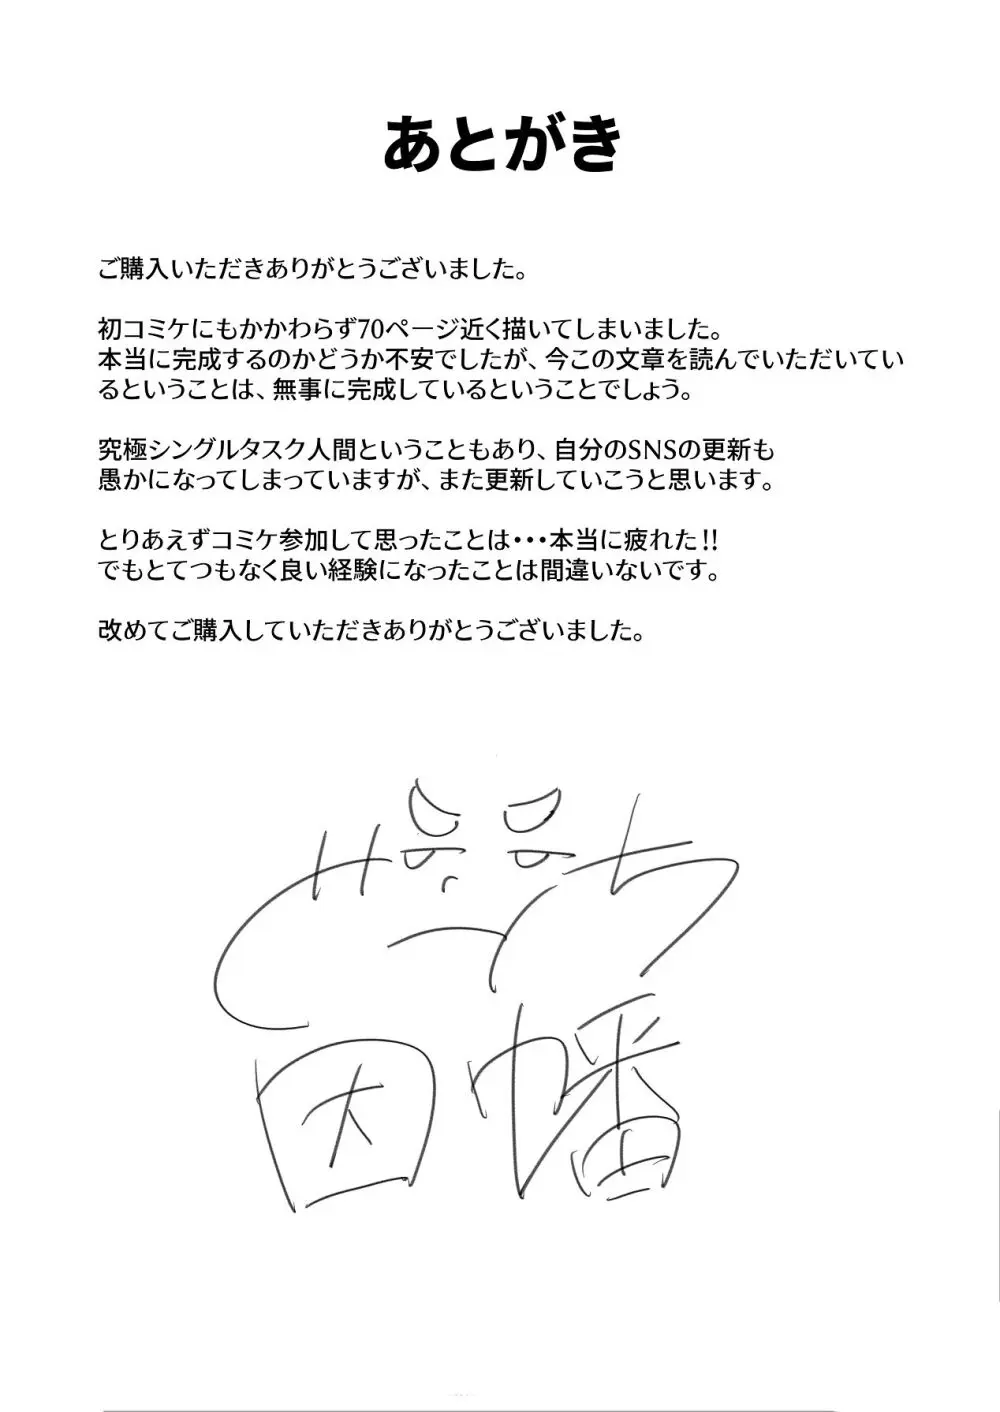 あとがき
ご購入いただきありがとうございました。
初コミケにもかかわらず70ページ近く描いてしまいました。
本当に完成するのかどうか不安でしたが、今この文章を読んでいただいてい
るということは、無事に完成しているということでしょう。
究極シングルタスク人間ということもあり、自分のSNSの更新も
愚かになってしまっていますが、また更新していこうと思います。
とりあえずコミケ参加して思ったことは・・・本当に疲れた!!
でもとてつもなく良い経験になったことは間違いないです。
改めてご購入していただきありがとうございました。
因幡